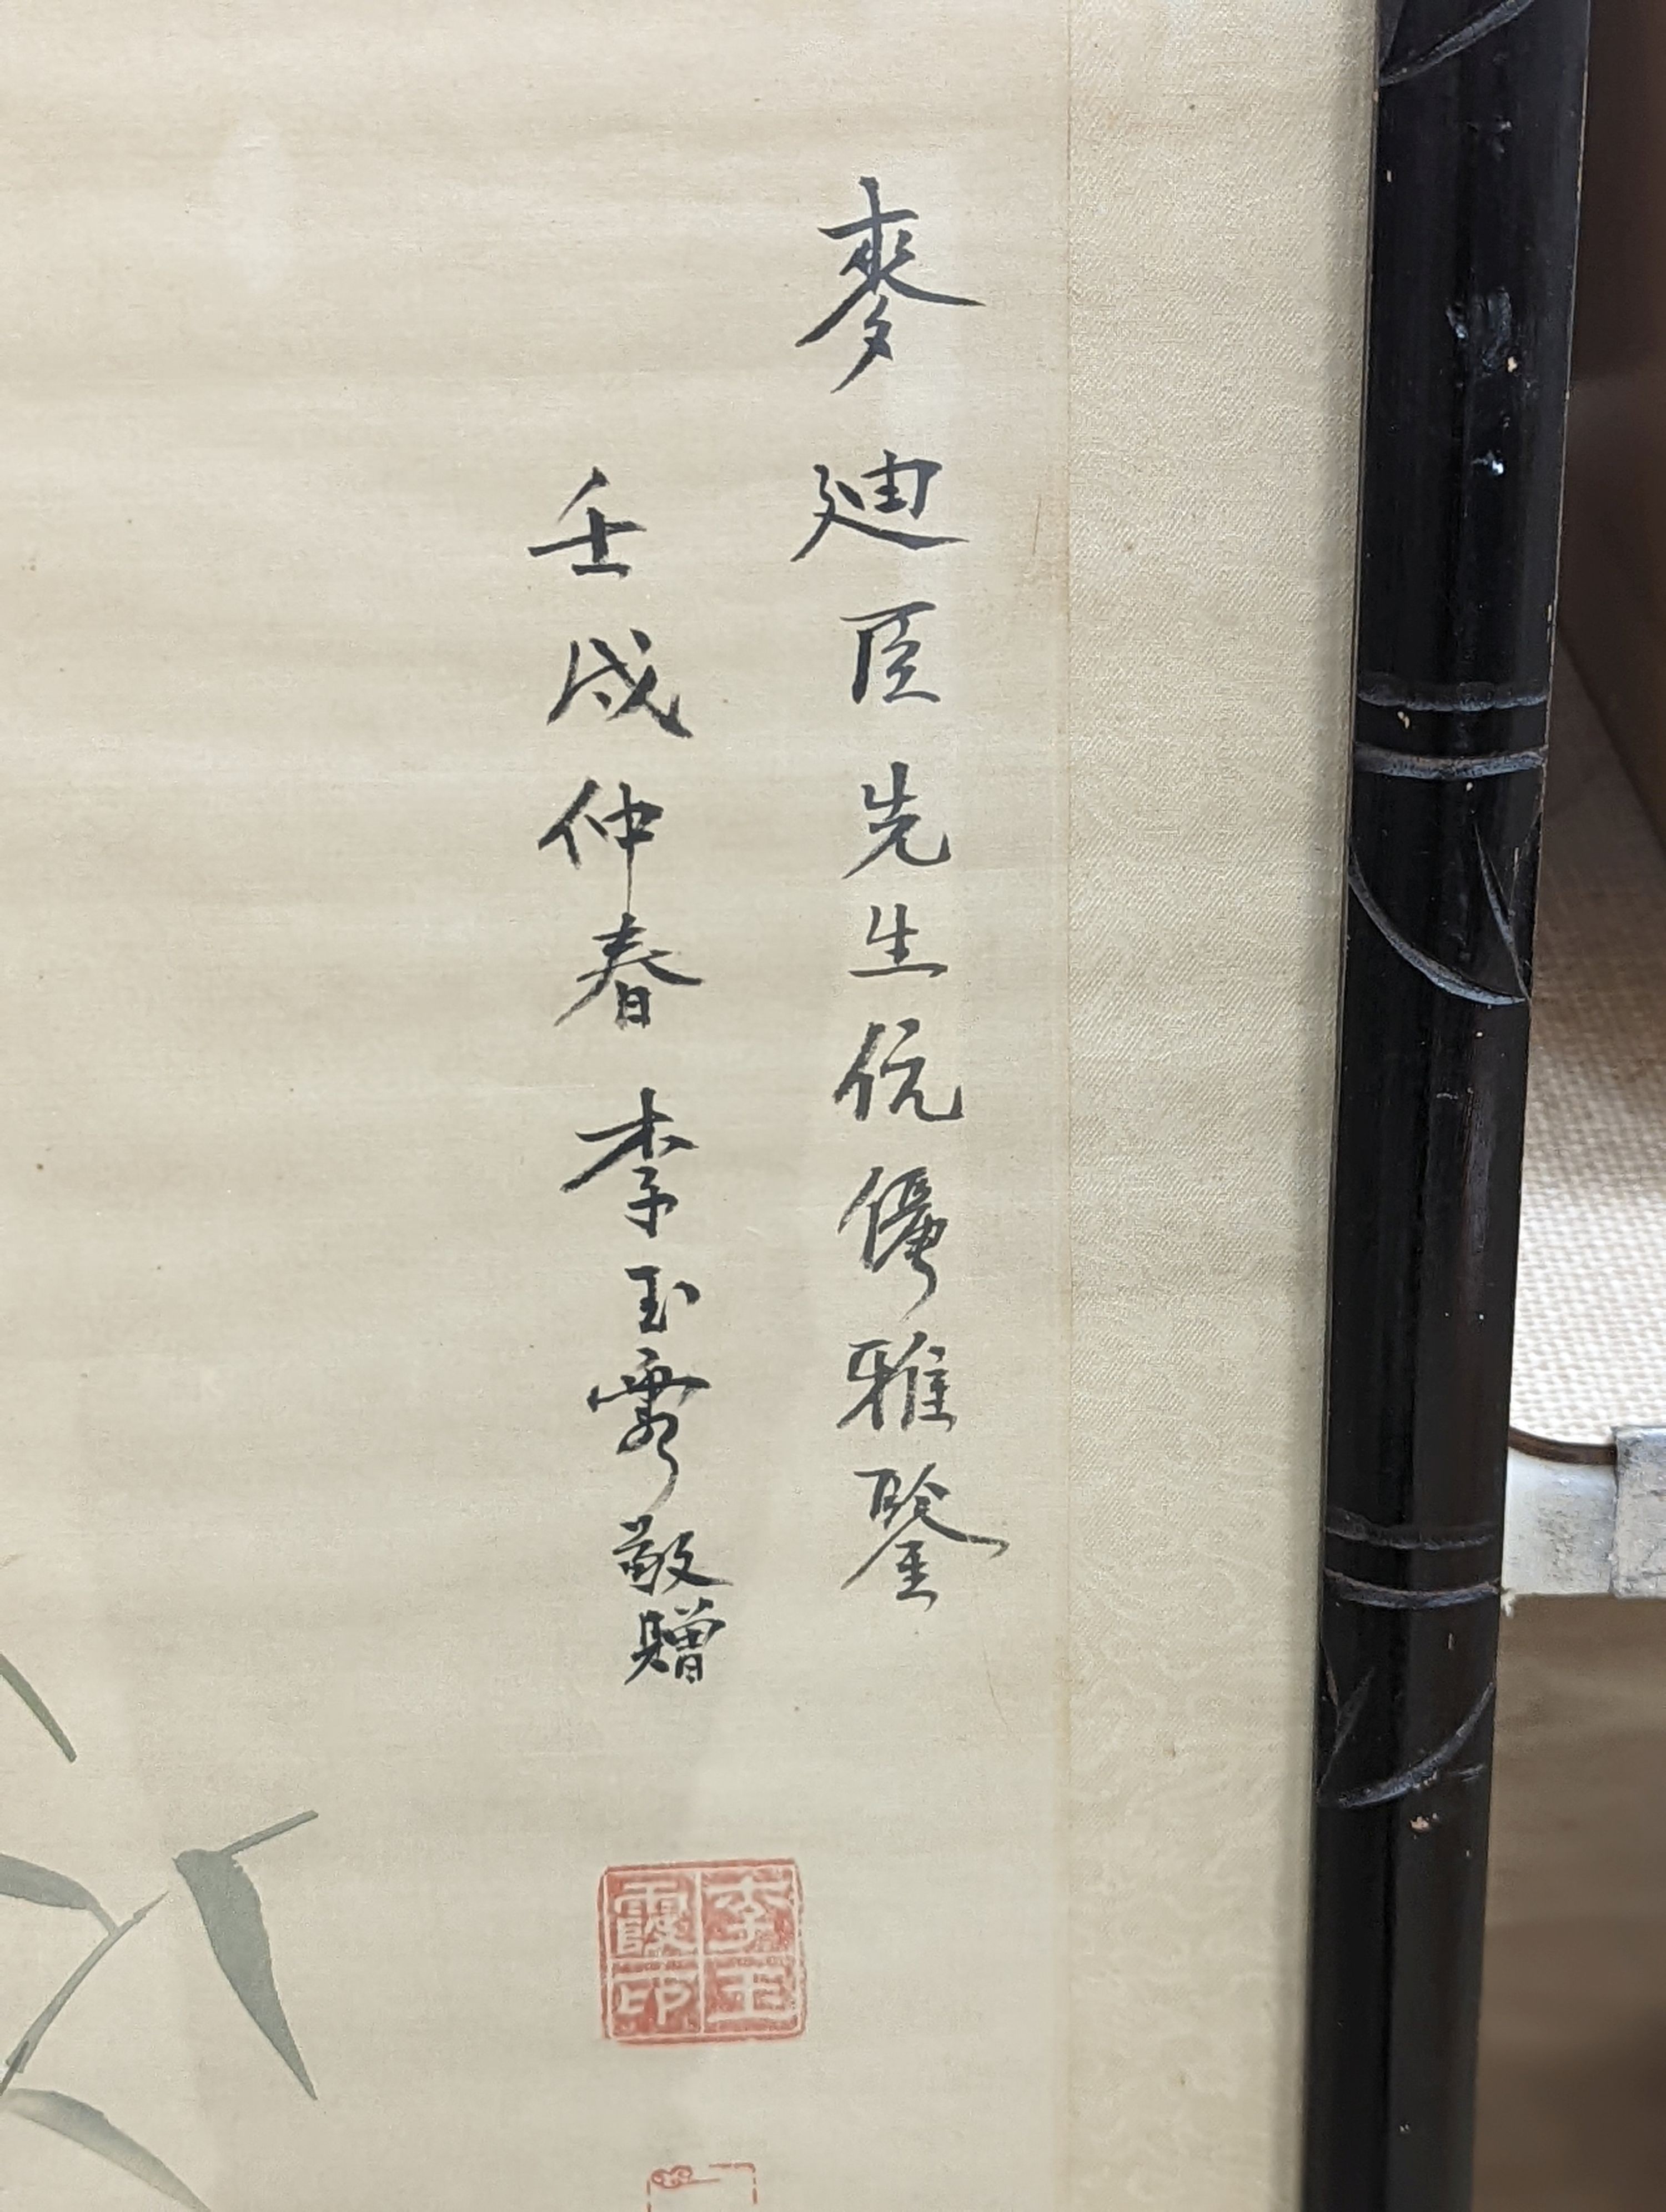 麥廸臣先生伉儷雅鑒
壬戌仲春李玉霞敬贈
李玉霞印